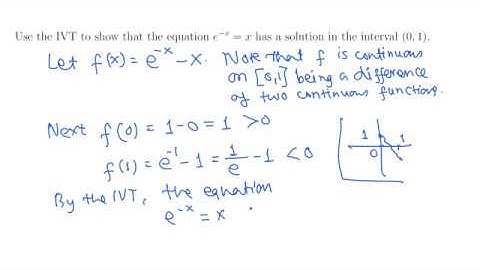 Use the IVT to show that the equation e^{-x} = x has a solution in the interval (0, 1).
Let f(x) = e^{-x} - x. Note that f is continuous
on [0,1] being a difference
of two continuous functions.
Next f(0) = 1-0 = 1 > 0
f(1) = e^{-1} - 1 = 1/e - 1 < 0
1
0
1
By the IVT, the equation
e^{-x} = x